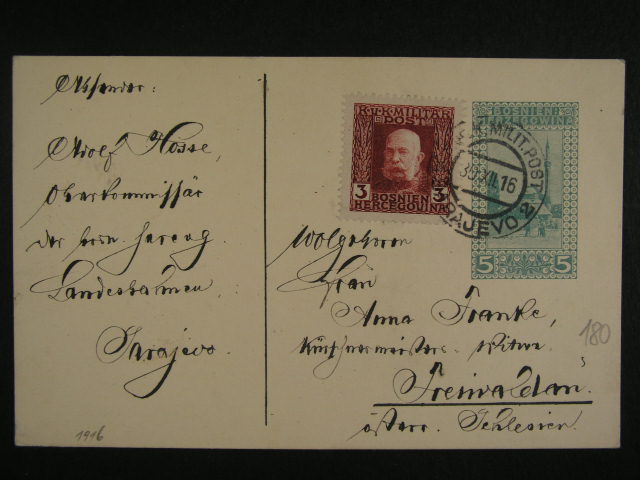 Absender:
Adolf Hosse,
Oberkommissär
der bosn. herzeg.
Landesbahnen
Sarajevo.
1916
K.u.K. MILITÄR
POST
3 3
BOSNIEN
HERCEGOVINA
BOSNIEN
HERCEGOVINA
K.u.K. MILIT. POST
30.XII.16
SARAJEVO 2
5 5
Wolgeboren
Frau
Anna Franke,
Kürschnermeisters-Witwe
Freiwaldau.
österr. Schlesien.
180